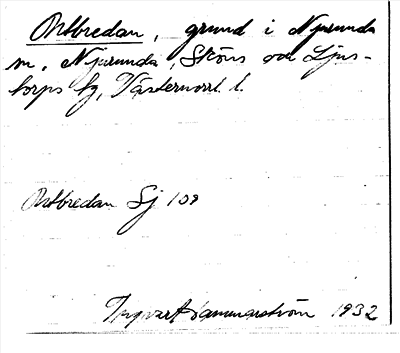 Ortbredan, grund i Njurunda
sn, Njurunda, Sköns och Ljus-
torps tg, Västernorrl. l.
Ortbredan Sj 109
Ingvar Hammarström 1932